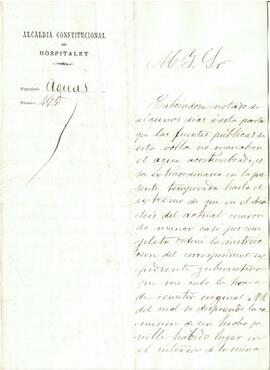 ALCALDIA CONSTITUCIONAL
DE
HOSPITALET
Negociado Aguas
Número 495
M. I. Sr
Habiéndose notado de
algunos dias á esta parte
que las fuentes públicas de
esta villa no manaban
el agua acostumbrada, co
sa extraordinaria en la pre
sente temporada hasta el
extremo de que en el dia
seis del actual cesaron
de manar casi por com
pleto ordené la instruc
cion del correspondiente ex
pediente gubernativo
que me cabe la honra
de remitir original á V.S.
del cual se desprende la eje
cucion de un hecho pu
nible habido lugar en
el interior de la mina